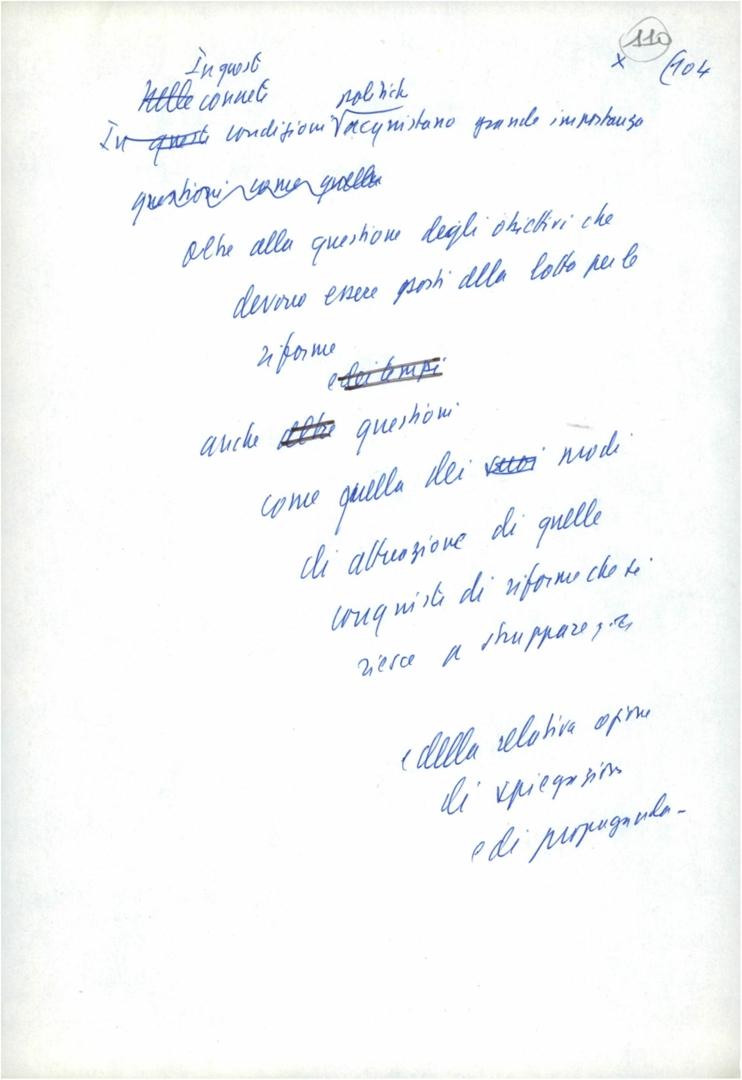 110
x (104
In questi
Nelle concrete
politiche
In questi condizioni acquistano grande importanza
questioni come quella
oltre alla questione degli obiettivi che
devono essere posti alla lotta per le
riforme
e dei tempi
anche altre questioni
come quella dei modi
di attuazione di quelle
conquiste di riforme che si
riesce a strappare
e della relativa azione
di spiegazione
e di propaganda -